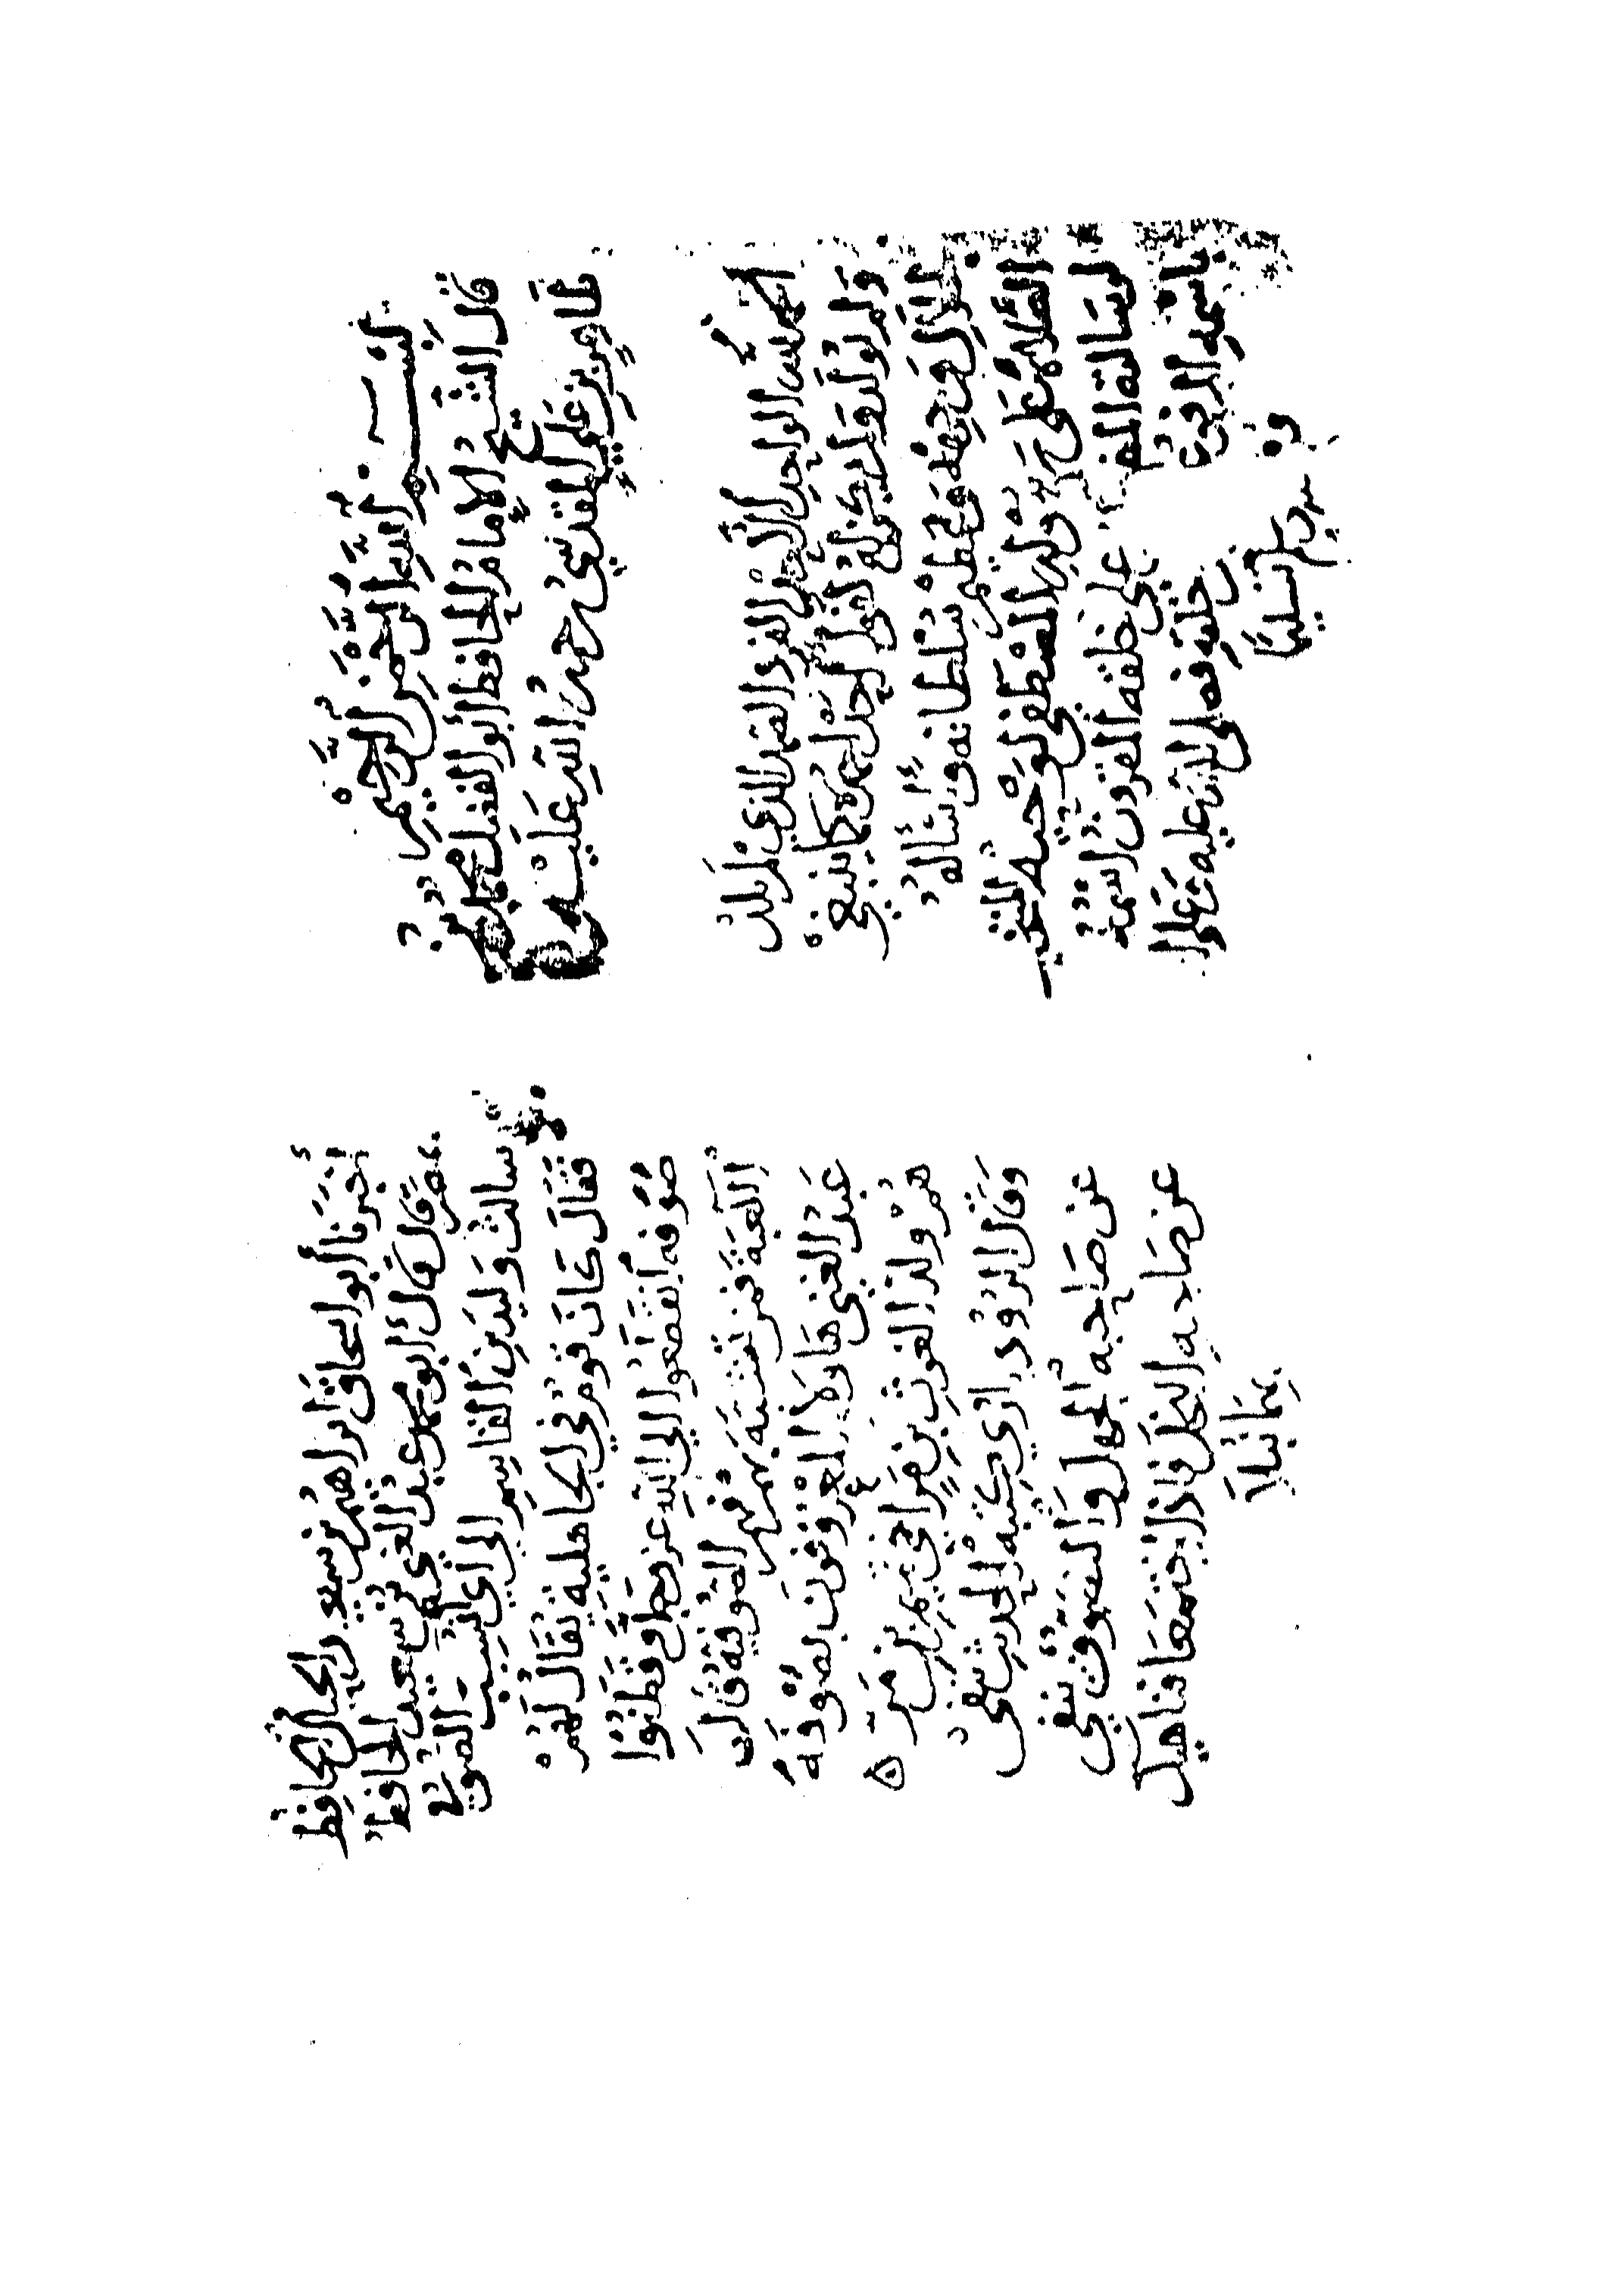 بسم الله الرحمن الرحيم
قال الشيخ الامام الحافظ ابو الفضل محمد بن
طاهر بن علي المقدسي رحمة الله عليه
الحمد لله الواحد الأحد الفرد الصمد الذي لم يلد
ولم يولد ولم يكن له كفوا احد احمده كما ينبغي
لجلال وجهه وعظم سلطانه وأسأله
الصلاة على وليه المصطفى لوحيه المتخير
لرسالته على خلقه المقرون اسمه
باسمه خلقه فصلى الله عليه وعلى
وسلم تسليما
أخبرنا أبو اسحاق ابراهيم بن سعيد الحبال الحافظ
بمصر قال قال أبو محمد عبد الغني بن سعيد الحافظ
سالت وليد بن القاسم إلى أي شيء نسب الصوفي
فقال كان قوم في الجاهلية يقال لهم
صوفه انقطعوا الى الله عز وجل وقطنوا
الكعبة فمن تشبه بهم فهم الصوفية قال
عبد الغني هاولاء المعروفون بصوفة
هم ولد الغوث بن مر اخي تميم بن مر ه
وقال كتبة الحديث ينفي
عن صاحبه الجهل والتصوف ينفي
عن صاحبه البخل فاذا اجتمعا فناهيك
بهما نبلا